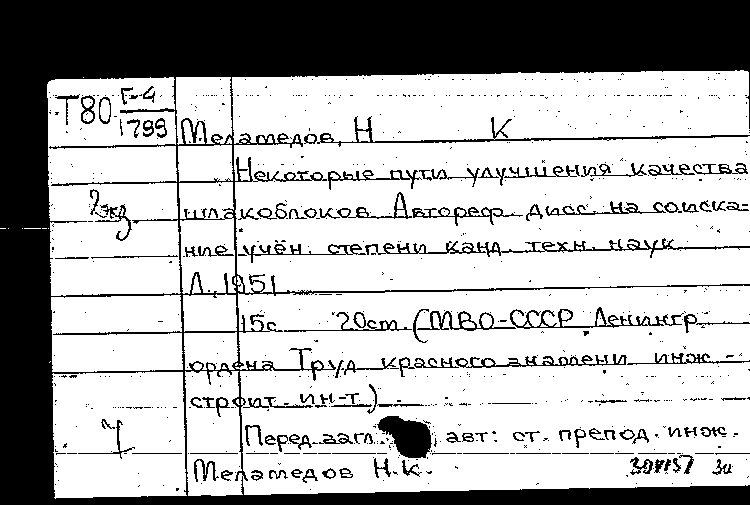 Т80 Г-4
1799
Меламедов, Н К
Некоторые пути улучшения качества
2 экз.
шлакоблоков. Автореф. дисс. на соиска-
ние учён. степени канд. техн. наук
Л., 1951
15с 20cm. (МВО-СССР Ленингр.
ордена Труд красного знамени инж-
строит. ин-т.)
Перед загл. авт: ст. препод. инж.
Меламедов Н.К.